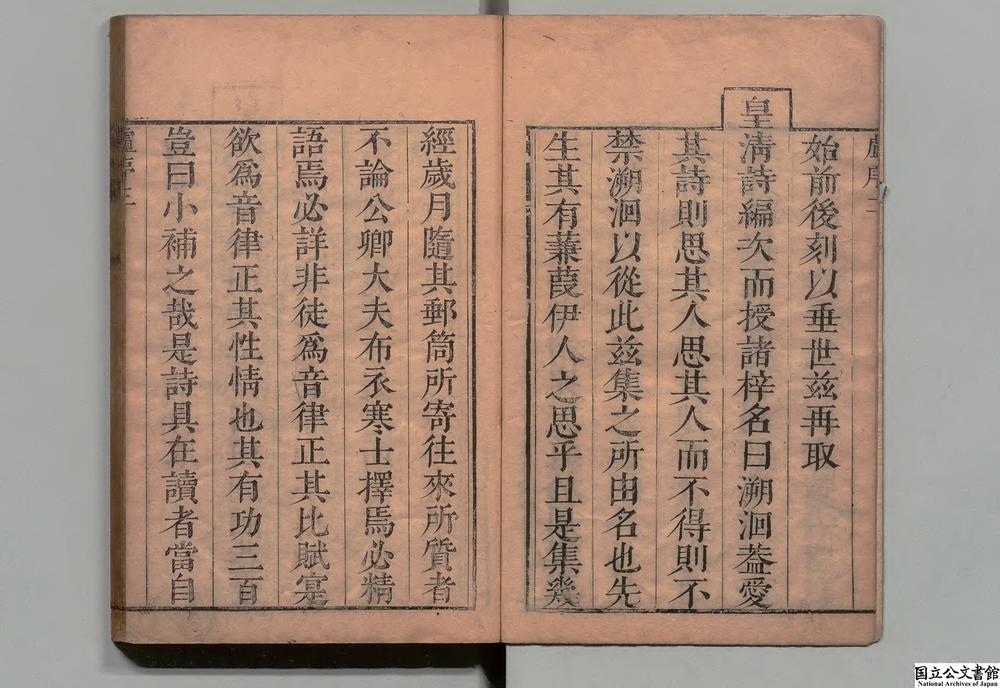 始前後刻以垂世茲再取
皇清詩編次而授諸梓名曰溯洄蓋愛
其詩則思其人思其人而不得則不
禁溯洄以從此茲集之所由名也先
生其有蒹葭伊人之思乎且是集幾
經歲月隨其郵筒所寄往來所質者
不論公卿大夫布衣寒士擇焉必精
語焉必詳非徒爲音律正其比賦寔
欲爲音律正其性情也其有功三百
豈曰小補之哉是詩具在讀者當自
国立公文書館
National Archives of Japan